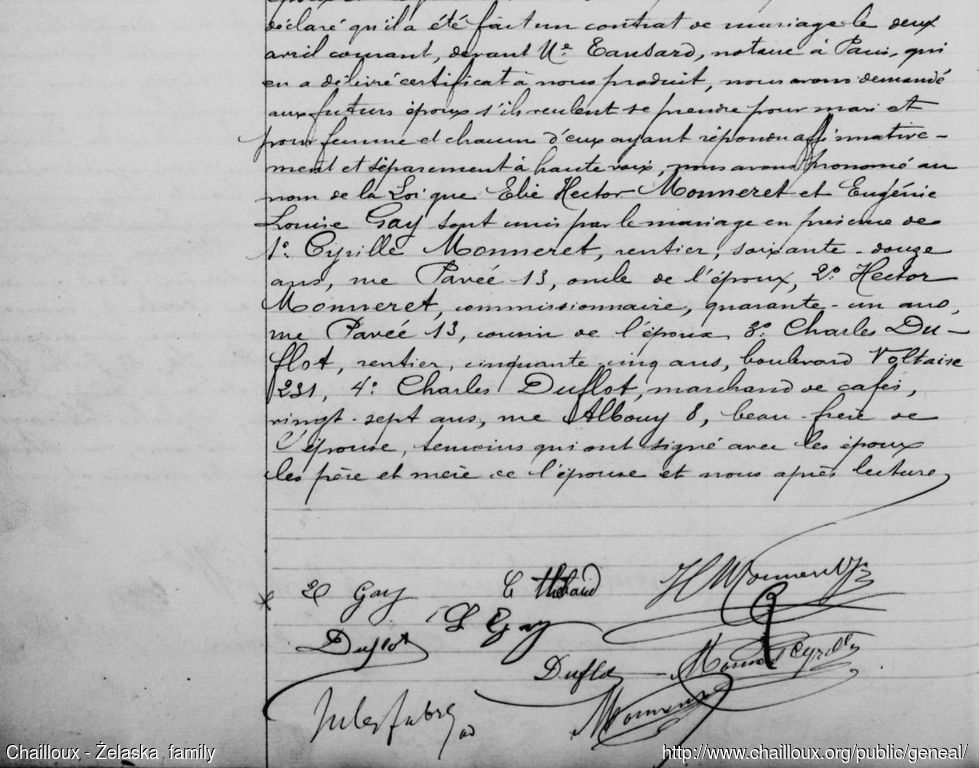 déclaré qu'il a été fait un contrat de mariage le deux
avril courant, devant Me Tansard, notaire à Paris, qui
en a délivré certificat à nous produit, nous avons demandé
aux futurs époux s'ils veulent se prendre pour mari et
pour femme et chacun d'eux ayant répondu affirmative-
ment et séparement à haute voix, nous avons prononcé au
nom de la Loi que Elie Hector Monneret et Eugénie
Louise Gay sont unis par le mariage en présence de
1º. Cyrille Monneret, rentier, soixante-douze
ans, rue Pavée 13, oncle de l'époux, 2º. Hector
Monneret, commissionnaire, quarante-un ans,
rue Pavée 13, cousin de l'époux 3º Charles Du-
flot, rentier, cinquante cinq ans, boulevard Voltaire
231, 4º. Charles Duflot, marchand de cafés,
vingt-sept ans, rue Albouy 8, beau-frère de
l'épouse, témoins qui ont signé avec les époux
les père et mère de l'épouse et nous après lecture
E Gay
C Thibaud
H Monneret
L Gay
Duflot
Duflot
Monneret Cyrille
Jules Fabre
Monneret
Chailloux - Żelaska family
http://www.chailloux.org/public/geneal/